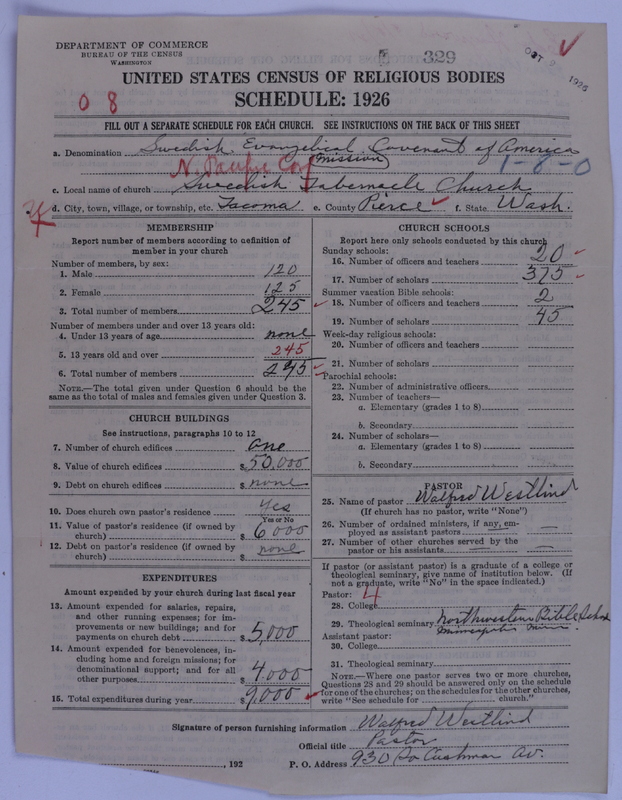 DEPARTMENT OF COMMERCE
BUREAU OF THE CENSUS
WASHINGTON
329
OCT 9 1926
UNITED STATES CENSUS OF RELIGIOUS BODIES
SCHEDULE: 1926
0 8
FILL OUT A SEPARATE SCHEDULE FOR EACH CHURCH. SEE INSTRUCTIONS ON THE BACK OF THIS SHEET
a. Denomination Swedish Evangelical Mission Covenant of America
N. Pacific Conf
1-8-0
c. Local name of church Swedish Tabernacle Church
d. City, town, village, or township, etc. Tacoma e. County Pierce f. State Wash.
MEMBERSHIP
Report number of members according to definition of
member in your church
Number of members, by sex:
1. Male 120
2. Female 125
3. Total number of members 245
Number of members under and over 13 years old:
4. Under 13 years of age none
5. 13 years old and over 245
6. Total number of members 245
NOTE.—The total given under Question 6 should be the
same as the total of males and females given under Question 3.
CHURCH BUILDINGS
See instructions, paragraphs 10 to 12
7. Number of church edifices one
8. Value of church edifices $50,000
9. Debt on church edifices $none
10. Does church own pastor's residence yes
Yes or No
11. Value of pastor's residence (if owned by
church) $6000
12. Debt on pastor's residence (if owned by
church) $none
EXPENDITURES
Amount expended by your church during last fiscal year
13. Amount expended for salaries, repairs,
and other running expenses; for im-
provements or new buildings; and for
payments on church debt $5,000
14. Amount expended for benevolences, in-
cluding home and foreign missions; for
denominational support; and for all
other purposes $4,000
15. Total expenditures during year $9,000
CHURCH SCHOOLS
Report here only schools conducted by this church
Sunday schools:
16. Number of officers and teachers 20
17. Number of scholars 375
Summer vacation Bible schools:
18. Number of officers and teachers 2
19. Number of scholars 45
Week-day religious schools:
20. Number of officers and teachers
21. Number of scholars
Parochial schools:
22. Number of administrative officers
23. Number of teachers—
a. Elementary (grades 1 to 8)
b. Secondary
24. Number of scholars—
a. Elementary (grades 1 to 8)
b. Secondary
PASTOR
25. Name of pastor Walfred Westlind
(If church has no pastor, write "None")
26. Number of ordained ministers, if any, em-
ployed as assistant pastors —
27. Number of other churches served by the
pastor or his assistants —
If pastor (or assistant pastor) is a graduate of a college or
theological seminary, give name of institution below. (If
not a graduate, write "No" in the space indicated.)
Pastor: 4
28. College
29. Theological seminary Northwestern Bible School
Minneapolis Minn.
Assistant pastor:
30. College
31. Theological seminary
NOTE.—Where one pastor serves two or more churches,
Questions 28 and 29 should be answered only on the schedule
for one of the churches; on the schedules for the other churches,
write "See schedule for church."
Signature of person furnishing information Walfred Westlind
Official title Pastor
, 192 P. O. Address 930 So Cushman Av.